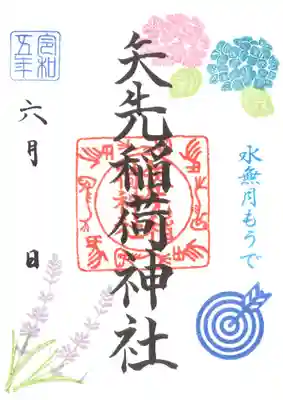 水無月もうで
矢先稲荷神社
令和
五年
六月 日